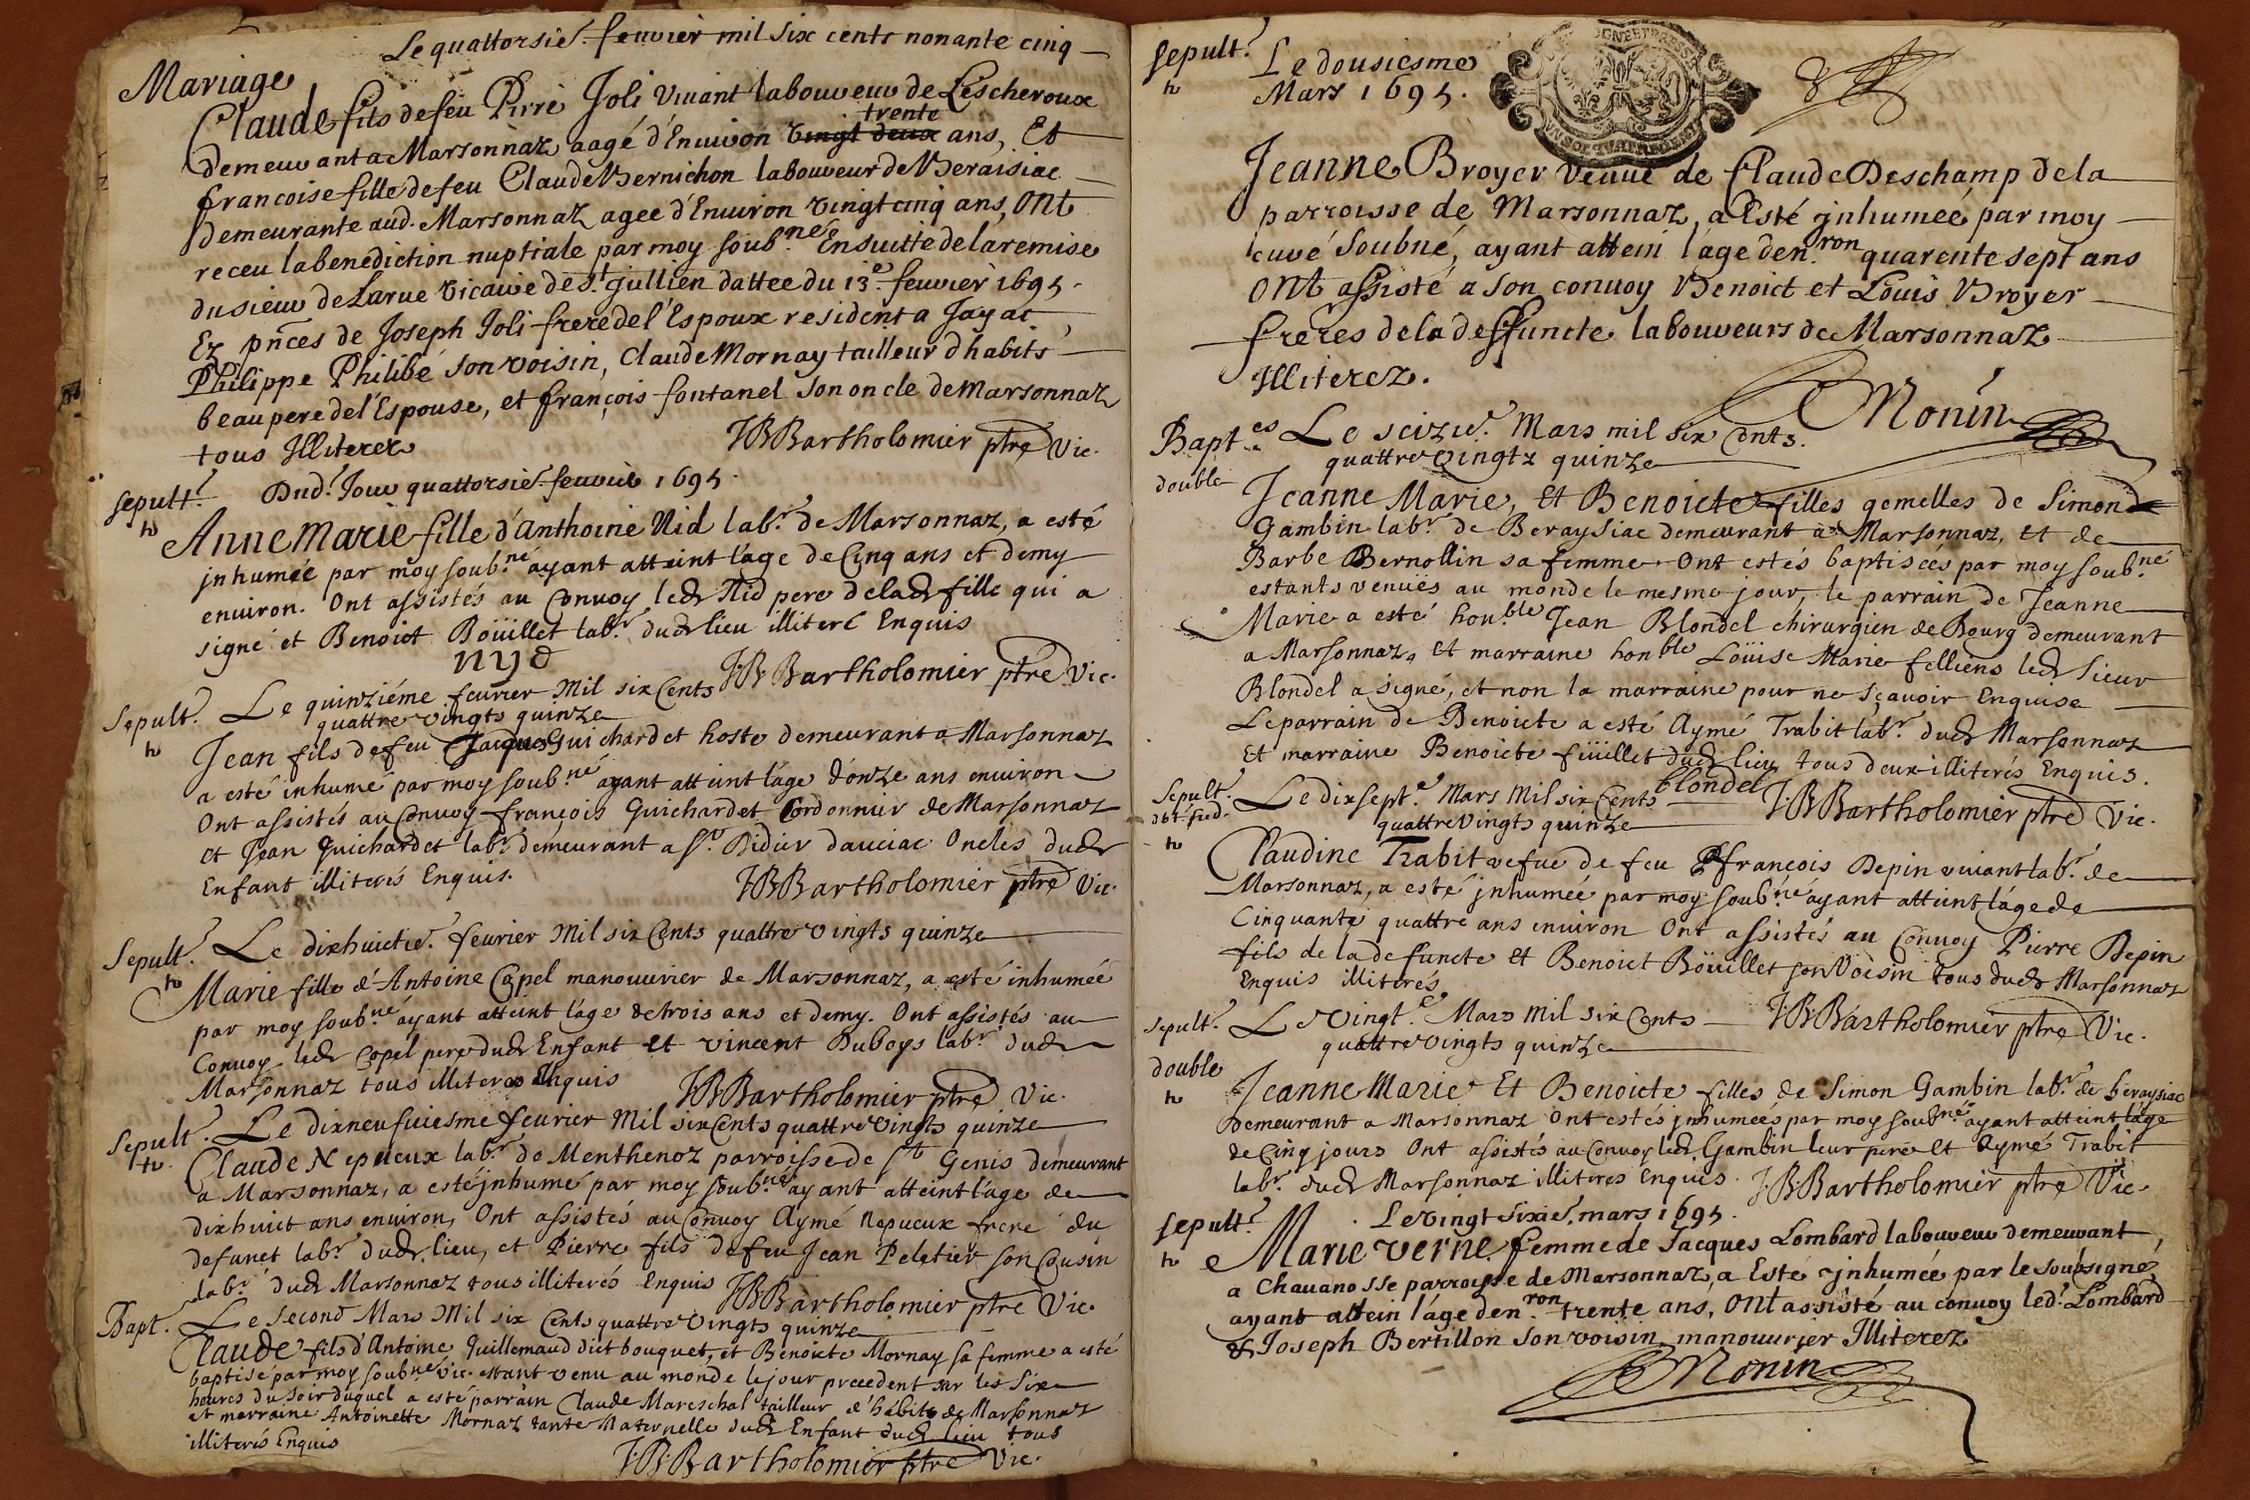 Le quattorsie. feuvier mil six cents nonante cinq
Mariage
Claude fils de feu Pirre Joli viuant labouveur de Lescheroux
trente
demeurant a Marsonnaz aagé d'Enuiron vingt deux ans, Et
francoise fille de feu Claude Vernichon laboureur de Veraisiac
demeurante aud. Marsonnaz agee d'Enuiron vingt cinq ans, Ont
receu la benediction nuptiale par moy soub.né Ensuitte de la remise
du sieur de Larue vicaire de S.t Jullien dattee du 13e feuvier 1695.
Ez pñces de Joseph Joli frere de l'Espoux resident a Jayat,
Philippe Philibé son voisin, Claude Mornay tailleur d'habits
beau pere de l'Espouse, et françois fontanel son oncle de Marsonnaz
tous Illiterez
JBBartholomier ptre Vic.
sepult.r Dud. Jour quattorsie. feuvié 1695.
tz
Anne Marie fille d'Anthoine Nid lab.r de Marsonnaz, a esté
jnhumée par moy soub.né ayant atteint l'age de Cinq ans et demy
enuiron. Ont assistés au Convoy led. Nid pere de lad. fille qui a
signé et Benoict Boüillet lab.r dud. lieu illiteré Enquis
nyd
J.B.Bartholomier ptre Vic.
Sepult. Le quinziéme feurier Mil six Cents
quattre vingts quinze
tz
Jean fils de feu Jacques Guichardet hoste demeurant a Marsonnaz
a esté inhumé par moy soub.né ayant atteint l'age d'onze ans enuiron
Ont assistés au Convoy françois Guichardet Cordonnier de Marsonnaz
et Jean Guichardet lab.r demeurant a St. Didier dauciac Oncles dud.
Enfant illiterés Enquis.
JBBartholomier ptre Vic.
Sepult. Le dixhuictie. feurier Mil six Cents quattre vingts quinze
tz
Marie fille d'Antoine Copel manouurier de Marsonnaz, a esté inhumée
par moy soub.né ayant atteint l'age de trois ans et demy. Ont assistés au
Convoy led. Copel pere dud. Enfant et vincent Duboys lab.r dud.
Marsonnaz tous illiterés Enquis
JBBartholomier ptre Vic.
Sepult. Le dixneufuiesme feurier Mil six Cents quattre vingts quinze
tz
Claude Nepueux lab.r de Menthenoz parroisse de St Genis demeurant
a Marsonnaz, a esté jnhumé par moy soub.né ayant atteint l'age de
dixhuict ans enuiron, Ont assistés au Convoy Aymé Nepueux frere du
defunct lab.r dud. lieu, et Pierre fils de feu Jean Peletier son Cousin
lab.r dud. Marsonnaz tous illiterés Enquis
JBBartholomier ptre Vic.
Bapt. Le second Mars Mil six Cents quattre vingts quinze
Claude fils d'Antoine Guillemaud dict bouquet, et Benoicte Mornay sa femme a esté
baptisé par moy soub.né vic. estant venu au monde le jour precedent sur les six
heures du soir duquel a esté parrain Claude Mareschal tailleur d'habits de Marsonnaz
et marraine Antoinette Mornaz tante Maternelle dud. Enfant dud. lieu tous
illiterés Enquis
J.B.Bartholomier ptre Vic.
sepult.r Le dousiesme
tz Mars 1695.
Jeanne Broyer veuue de Claude Deschamp de la
parroisse de Marsonnaz, a Esté jnhumeé par moy
curé Soubné, ayant attein l'age d'en.ron quarente sept ans
Ont assisté a son convoy Benoict et Louis Broyer
freres de la deffuncte laboureurs de Marsonnaz
Illiterez.
Monin
Bapt.es Le seizie. Mars mil six Cents.
quattre vingtz quinze
double
Jeanne Marie, et Benoicte filles gemelles de Simond
Gambin lab.r de Beraysiac demeurant a Marsonnaz, et de
Barbe Bernollin sa femme. Ont estés baptisées par moy soub.né
estants venuës au monde le mesme jour, le parrain de Jeanne
Marie a esté hon.ble Jean Blondel chirurgien de Bourg demeurant
a Marsonnaz, et marraine honble Loüise Marie felliens led. Sieur
Blondel a signé, et non la marraine pour ne sçauoir Enquise
Le parrain de Benoicte a esté Aymé Trabit lab.r dud. Marsonnaz
Et marraine Benoicte füillet dud. lieu tous deux illiterés Enquis.
blondel
J.B.Bartholomier ptre Vic.
Sepult. Le dixsept.e Mars Mil six Cents
quattre vingts quinze
tz
Claudine Trabit vefue de feu françois Depin viuant lab.r de
Marsonnaz, a esté jnhumeé par moy soub.né ayant atteint l'age de
Cinquante quattre ans enuiron Ont assistés au Convoy Pierre Depin
fils de la defuncte et Benoict Boüillet son Voisin tous dud. Marsonnaz
Enquis illiterés
J.B.Bartholomier ptre Vic.
sepult. Le vingt.e Mars Mil six Cents
quattre vingts quinze
double
tz
Jeanne Marie Et Benoicte filles de Simon Gambin lab.r de beraysiac
Demeurant a Marsonnaz Ont estés jnhumeés par moy soub.né ayant atteint l'age
de Cinq jours Ont assistés au Convoy led. Gambin leur pere et Aymé Trabit
lab.r dud. Marsonnaz illiterés Enquis.
J.B.Bartholomier ptre Vic.
sepult.r Le vingt sixie. mars 1695.
tz
Marie verne femme de Jacques Lombard laboureur demeurant,
a Chauanosse parroisse de Marsonnaz, a Esté jnhumée par le soubsigné
ayant attein l'age d'en.ron trente ans, Ont assisté au convoy led.t Lombard
& Joseph Bertillon son voisin manouurier Illiterez
Monin